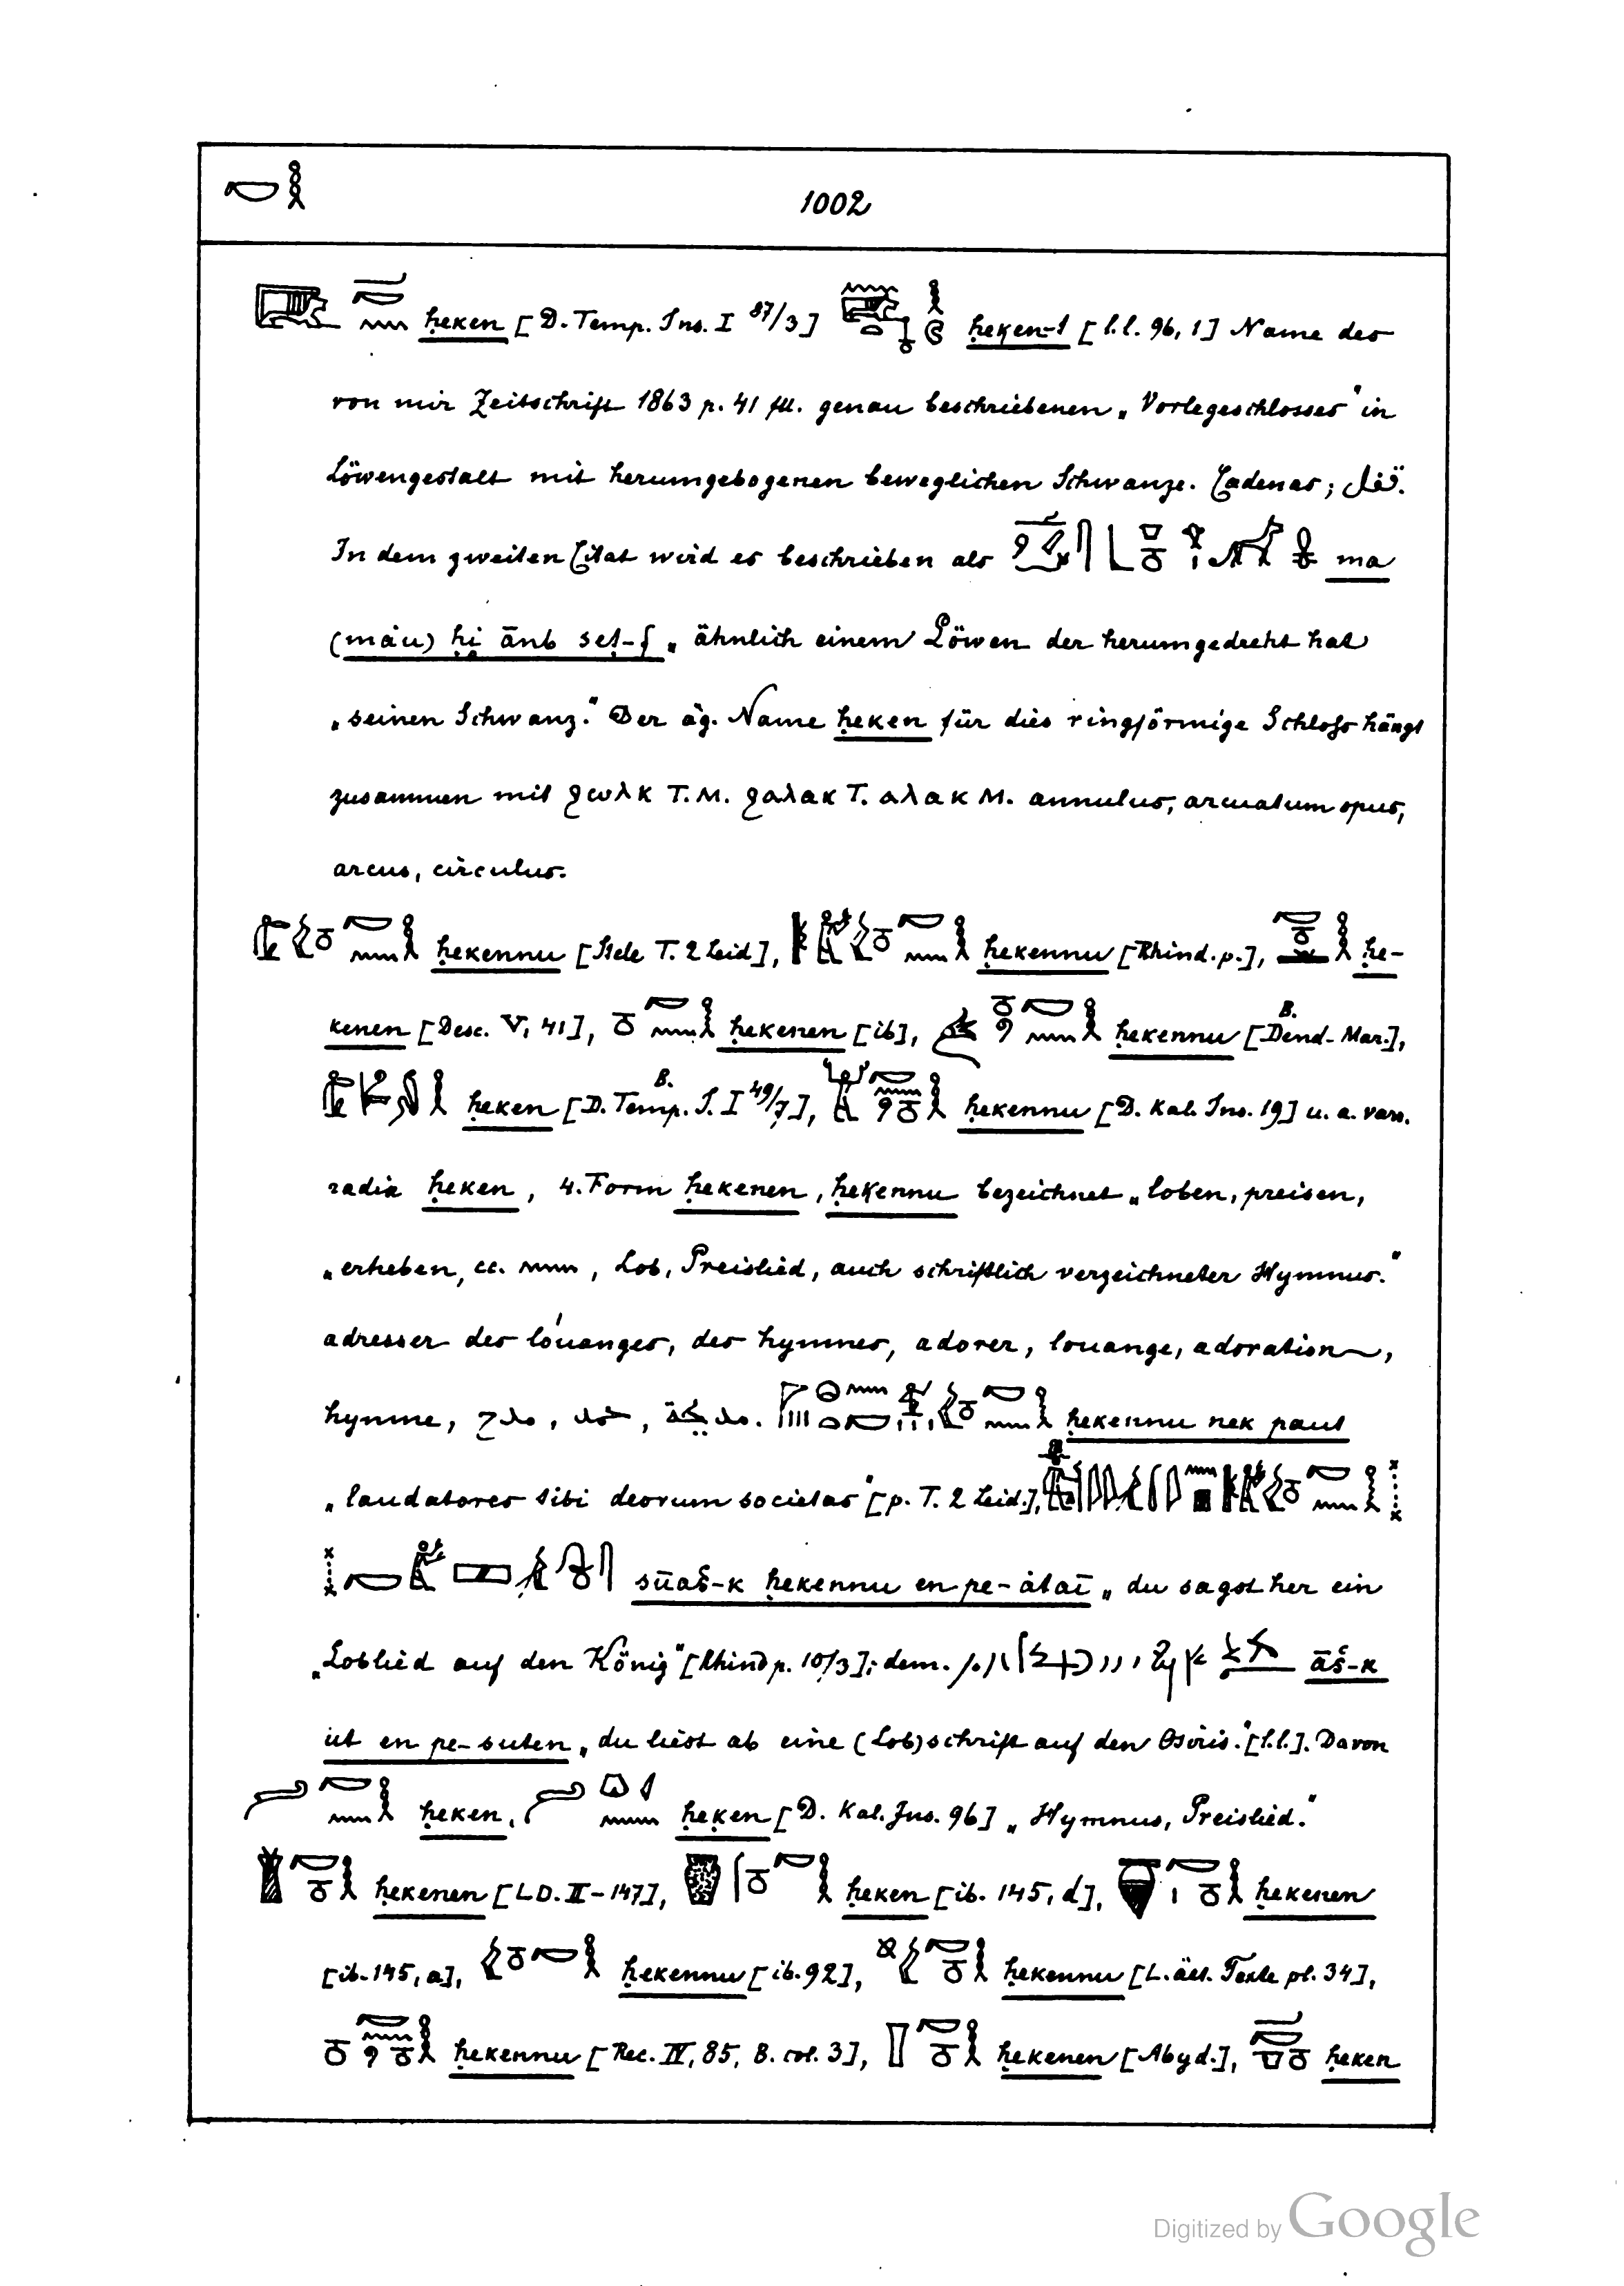 1002
ḥeken [D. Temp. Ins. I 87/3] ḥeḳen-t [l.l. 96, 1] Name des
von mir Zeitschrift 1863 p. 41 fll. genau beschriebenen „Vorlegeschlosses" in
Löwengestalt mit herumgebogenen beweglichen Schwanze. Cadenas; قفل.
In dem zweiten Citat wird es beschrieben als ma
(màu) ḥi ānb seṭ-f „ähnlich einem Löwen der herumgedreht hat
„seinen Schwanz." Der äg. Name ḥeken für dies ringförmige Schloss hängt
zusammen mit ϩωλκ T. M. ϩαλακ T. αλακ M. annulus, arcuatum opus,
arcus, circulus.
ḥekennu [Stele T. 2 Leid], ḥekennu [Rhind. p.], ḥe-
kenen [Desc. V, 41], ḥekenen [ib], ḥekennu [Dend. Mar.],
B.
ḥeken [D. Temp. I. I 49/7], ḥekennu [D. Kal. Ins. 19] u. a. varr.
B.
radix ḥeken, 4. Form ḥekenen, ḥekennu bezeichnet „loben, preisen,
„erheben, cc. , Lob, Preislied, auch schriftlich verzeichneter Hymnus."
adresser des louanges, des hymnes, adorer, louange, adoration,
hymne, مدح, حمد, مديحة. ḥekennu nek paut
„laudatores tibi deorum societas" [p. T. 2 Leid.],
sūaš-k ḥekennu en pe-àtaī „du sagst her ein
„Loblied auf den König" [Rhind p. 10/3]; dem. āš-k
ut en pe-suten „du liest ab eine (Lob)schrift auf den Osiris." [l.l.]. Davon
ḥeken, ḥeḳen [D. Kal. Ins. 96] „Hymnus, Preislied."
ḥekenen [LD. II-147], ḥeken [ib. 145, d], ḥekenen
[ib. 145, a], ḥekennu [ib. 92], ḥekennu [L. äll. Texte pl. 34],
ḥekennu [Rec. IV, 85, B. col. 3], ḥekenen [Abyd.], ḥeken
Digitized by Google